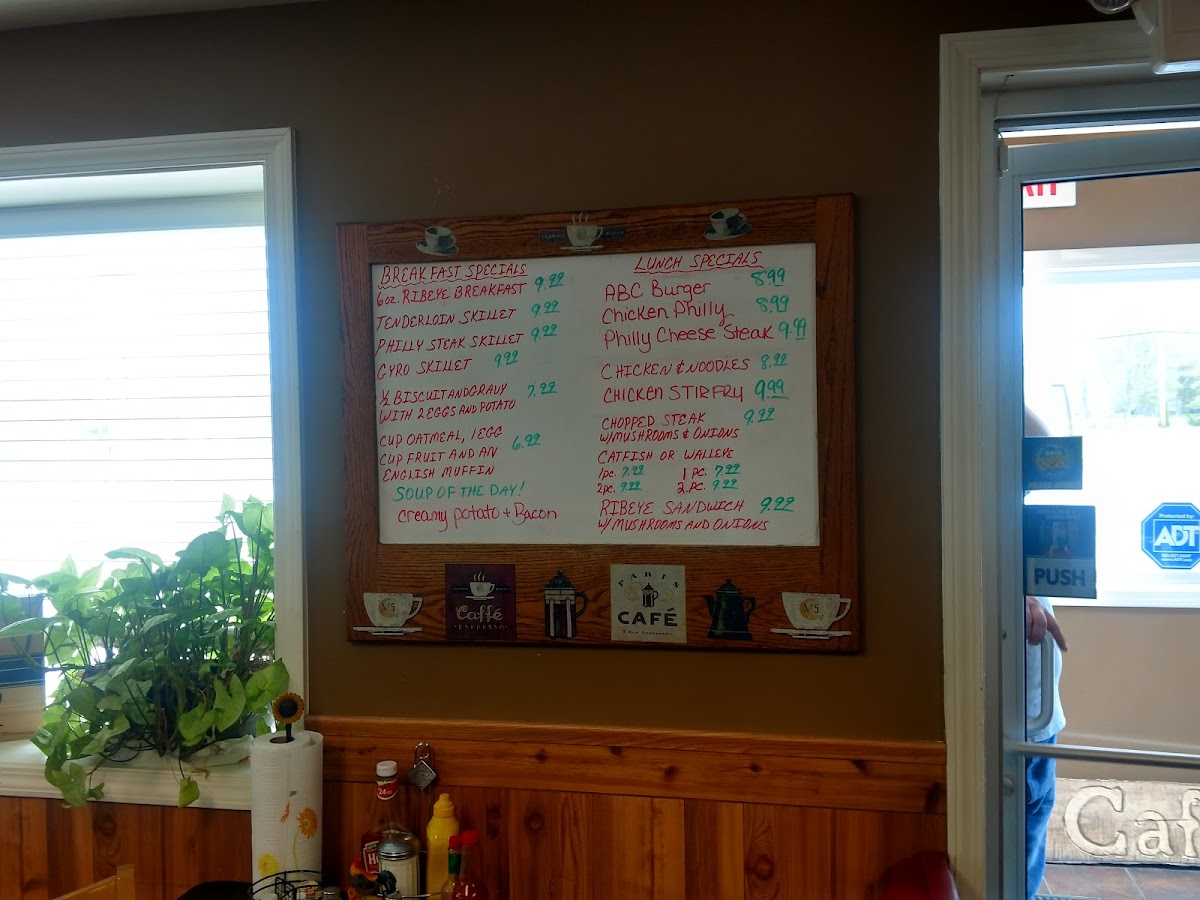 BREAKFAST SPECIALS
6oz. RIBEYE BREAKFAST 9.99
TENDERLOIN SKILLET 9.99
PHILLY STEAK SKILLET 9.99
GYRO SKILLET 9.99
½ BISCUIT AND GRAVY 7.99
WITH 2 EGGS AND POTATO
CUP OATMEAL, 1 EGG
CUP FRUIT AND AN 6.99
ENGLISH MUFFIN
SOUP OF THE DAY!
creamy potato + Bacon
LUNCH SPECIALS
ABC Burger 8.99
Chicken Philly 8.99
Philly Cheese Steak 9.99
CHICKEN & NOODLES 8.99
CHICKEN STIR FRY 9.99
CHOPPED STEAK 9.99
W/MUSHROOMS & ONIONS
CATFISH OR WALLEYE
1pc. 7.99 1 pc. 7.99
2pc. 9.99 2. pc. 9.99
RIBEYE SANDWICH 9.99
W/MUSHROOMS AND ONIONS
Caffé
ESPRESSO
PARIS
CAFÉ
Nº5
Nº5
PUSH
Protected by:
ADT
Caf